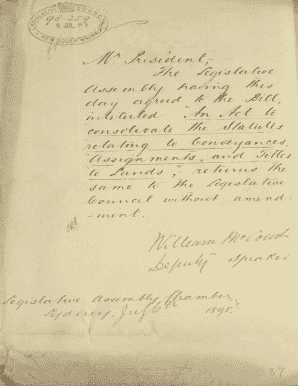 98-259
Mr President,
The Legislative
Assembly having this
day agreed to the Bill,
intituled "An Act to
consolidate the Statutes
relating to Conveyances,
Assignments, and Titles
to Lands", returns the
same to the Legislative
Council without amend-
-ment.
William McCourt
Deputy Speaker
Legislative Assembly Chamber,
Sydney, July 6th 1898.